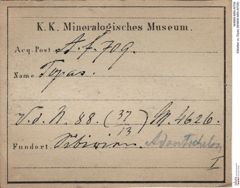 K. K. Mineralogisches Museum.
Acq. Post A. f. 709.
Name Topas.
V. d. N. 88. (37/13) M 4626.
Fundort: Sibirien. Adontschelon
I